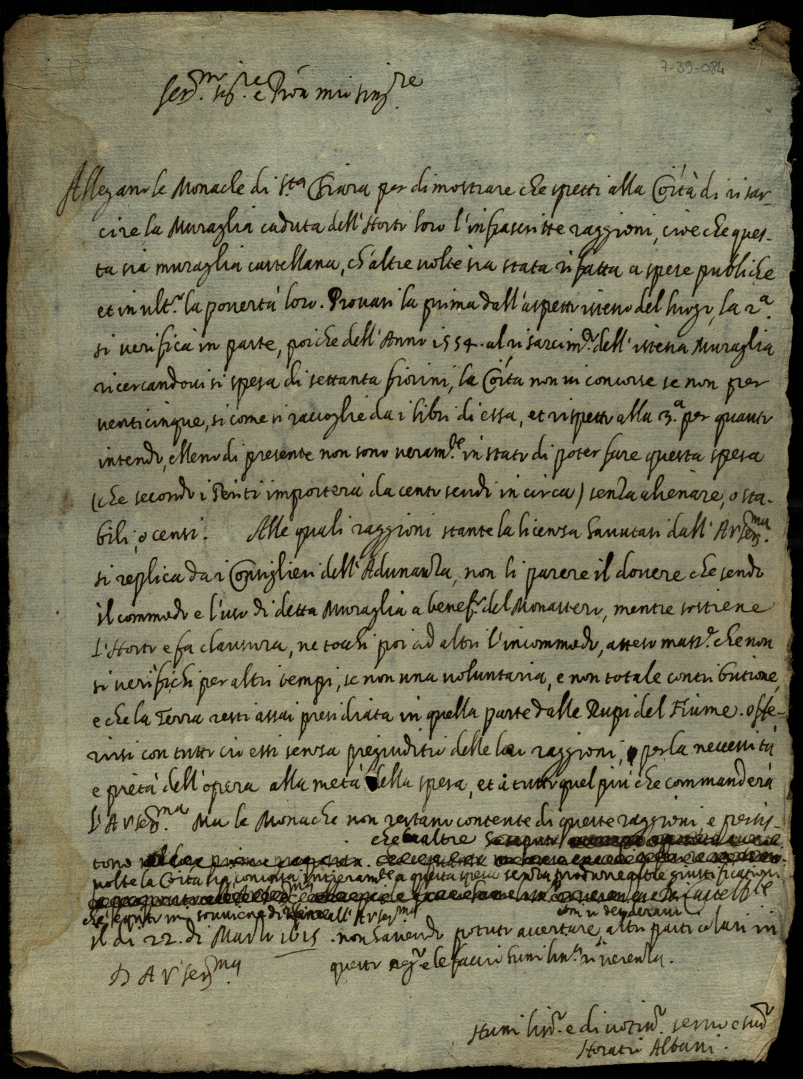 7-39-084
Ser.mo Sig.re e Pron mio Sing.re
Allegano le Monache di S.ta Chiara per dimostrare che spetti alla Co͂ità di risar-
cire la Muraglia caduta dell'Horto loro l'infrascritte raggioni, cioè che ques-
ta sia muraglia castellana, ch'altre volte sia stata rifatta a spese publiche
et in ult.o la povertà loro. Provasi la prima dall'aspetto istesso del luogo, la 2.a
si verifica in parte, poiche dell'Anno 1554. al risarcim.to dell'istessa Muraglia
ricercandovisi spesa di settanta fiorini, la Co͂ità non vi concorse se non per
venticinque, si come si raccoglie da i libri di essa, et rispetto alla 3.a per quanto
intendo, elleno di presente non sono veram.te in stato di poter fare questa spesa
(che secondo i Periti importerà da cento scudi in circa) senza alienare, o sta-
bili, o censi. Alle quali raggioni stante la licenza havutasi dall'A V Ser.ma
si replica da i Consiglieri dell'Adunanza, non li parere il dovere che sendo
il commodo e l'uso di detta Muraglia a benef.o del Monastero, mentre sostiene
l'Horto e fa clausura, ne tocchi poi ad altri l'incommodo, atteso mass.e che non
si verifichi per altri tempi, se non una voluntaria, e non totale contributione,
e che la Terra resti assai presidiata in quella parte dalle Rupi del Fiume. Offe-
rirsi con tutto cio essi senza pregiuditio delle lor raggioni, per la necessità
e pietà dell'opera alla metà della spesa, et à tutto quel più che commanderà
l'A V Ser.ma Ma le Monache non restano contente di queste raggioni, e persis-
tono che altre
volte la Co͂ità sia concorsa interam.te a questa spesa senza produrne altre giustificationi
che è quanto mi sovviene di dire all'A V Ser.ma
il di 22. di Marzo 1615. non havendo potuto accertare altri particolari in
questo neg.o e le faccio humiliss.a riverenza.
D A V Ser.ma
Humiliss.o e divotiss.o servo e sud.o
Horatio Albani.